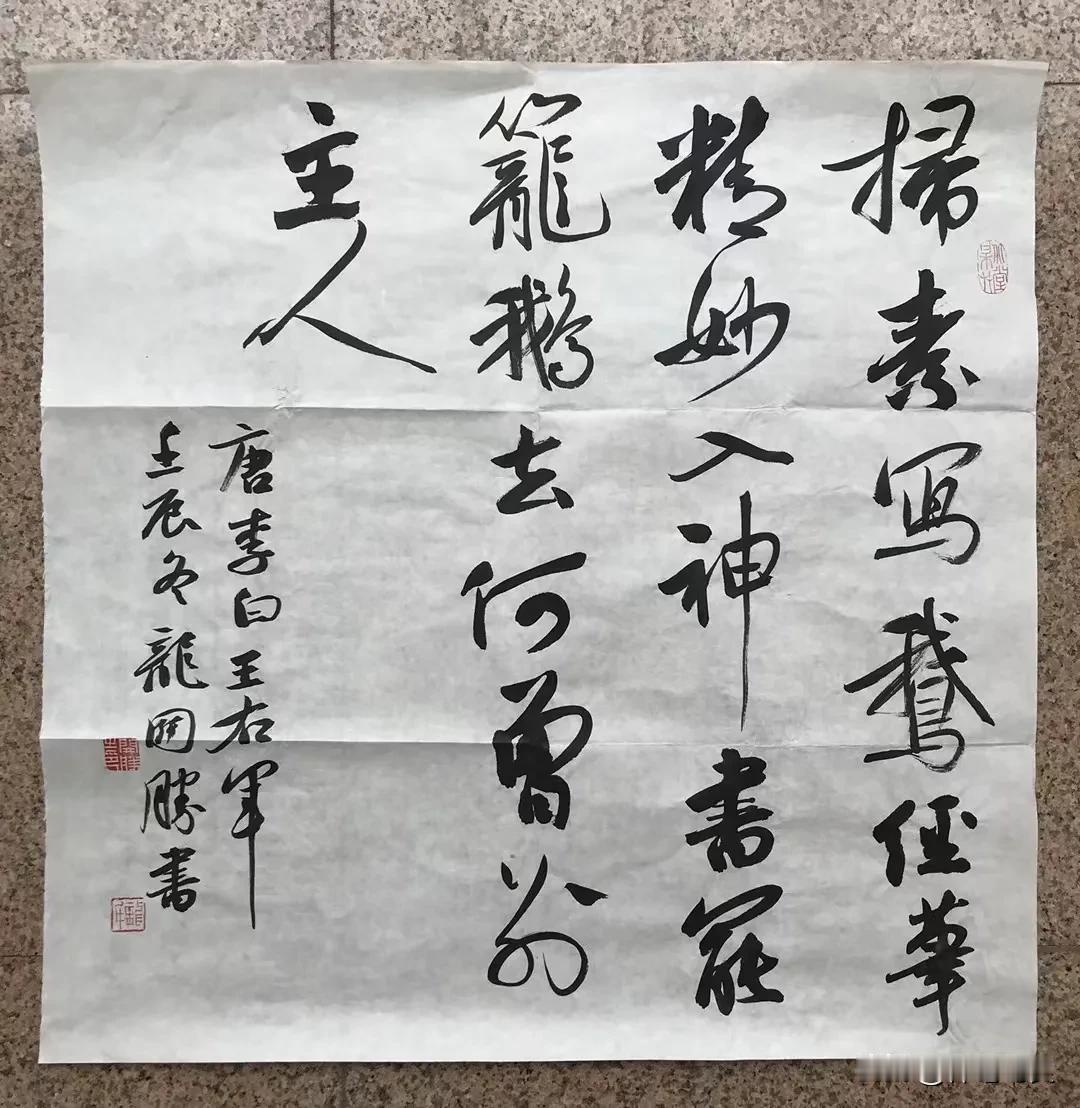 掃素写鵝經筆
精妙入神書罷
籠鵝去何曾別
主人
唐李白王右軍
壬辰冬龍開勝書